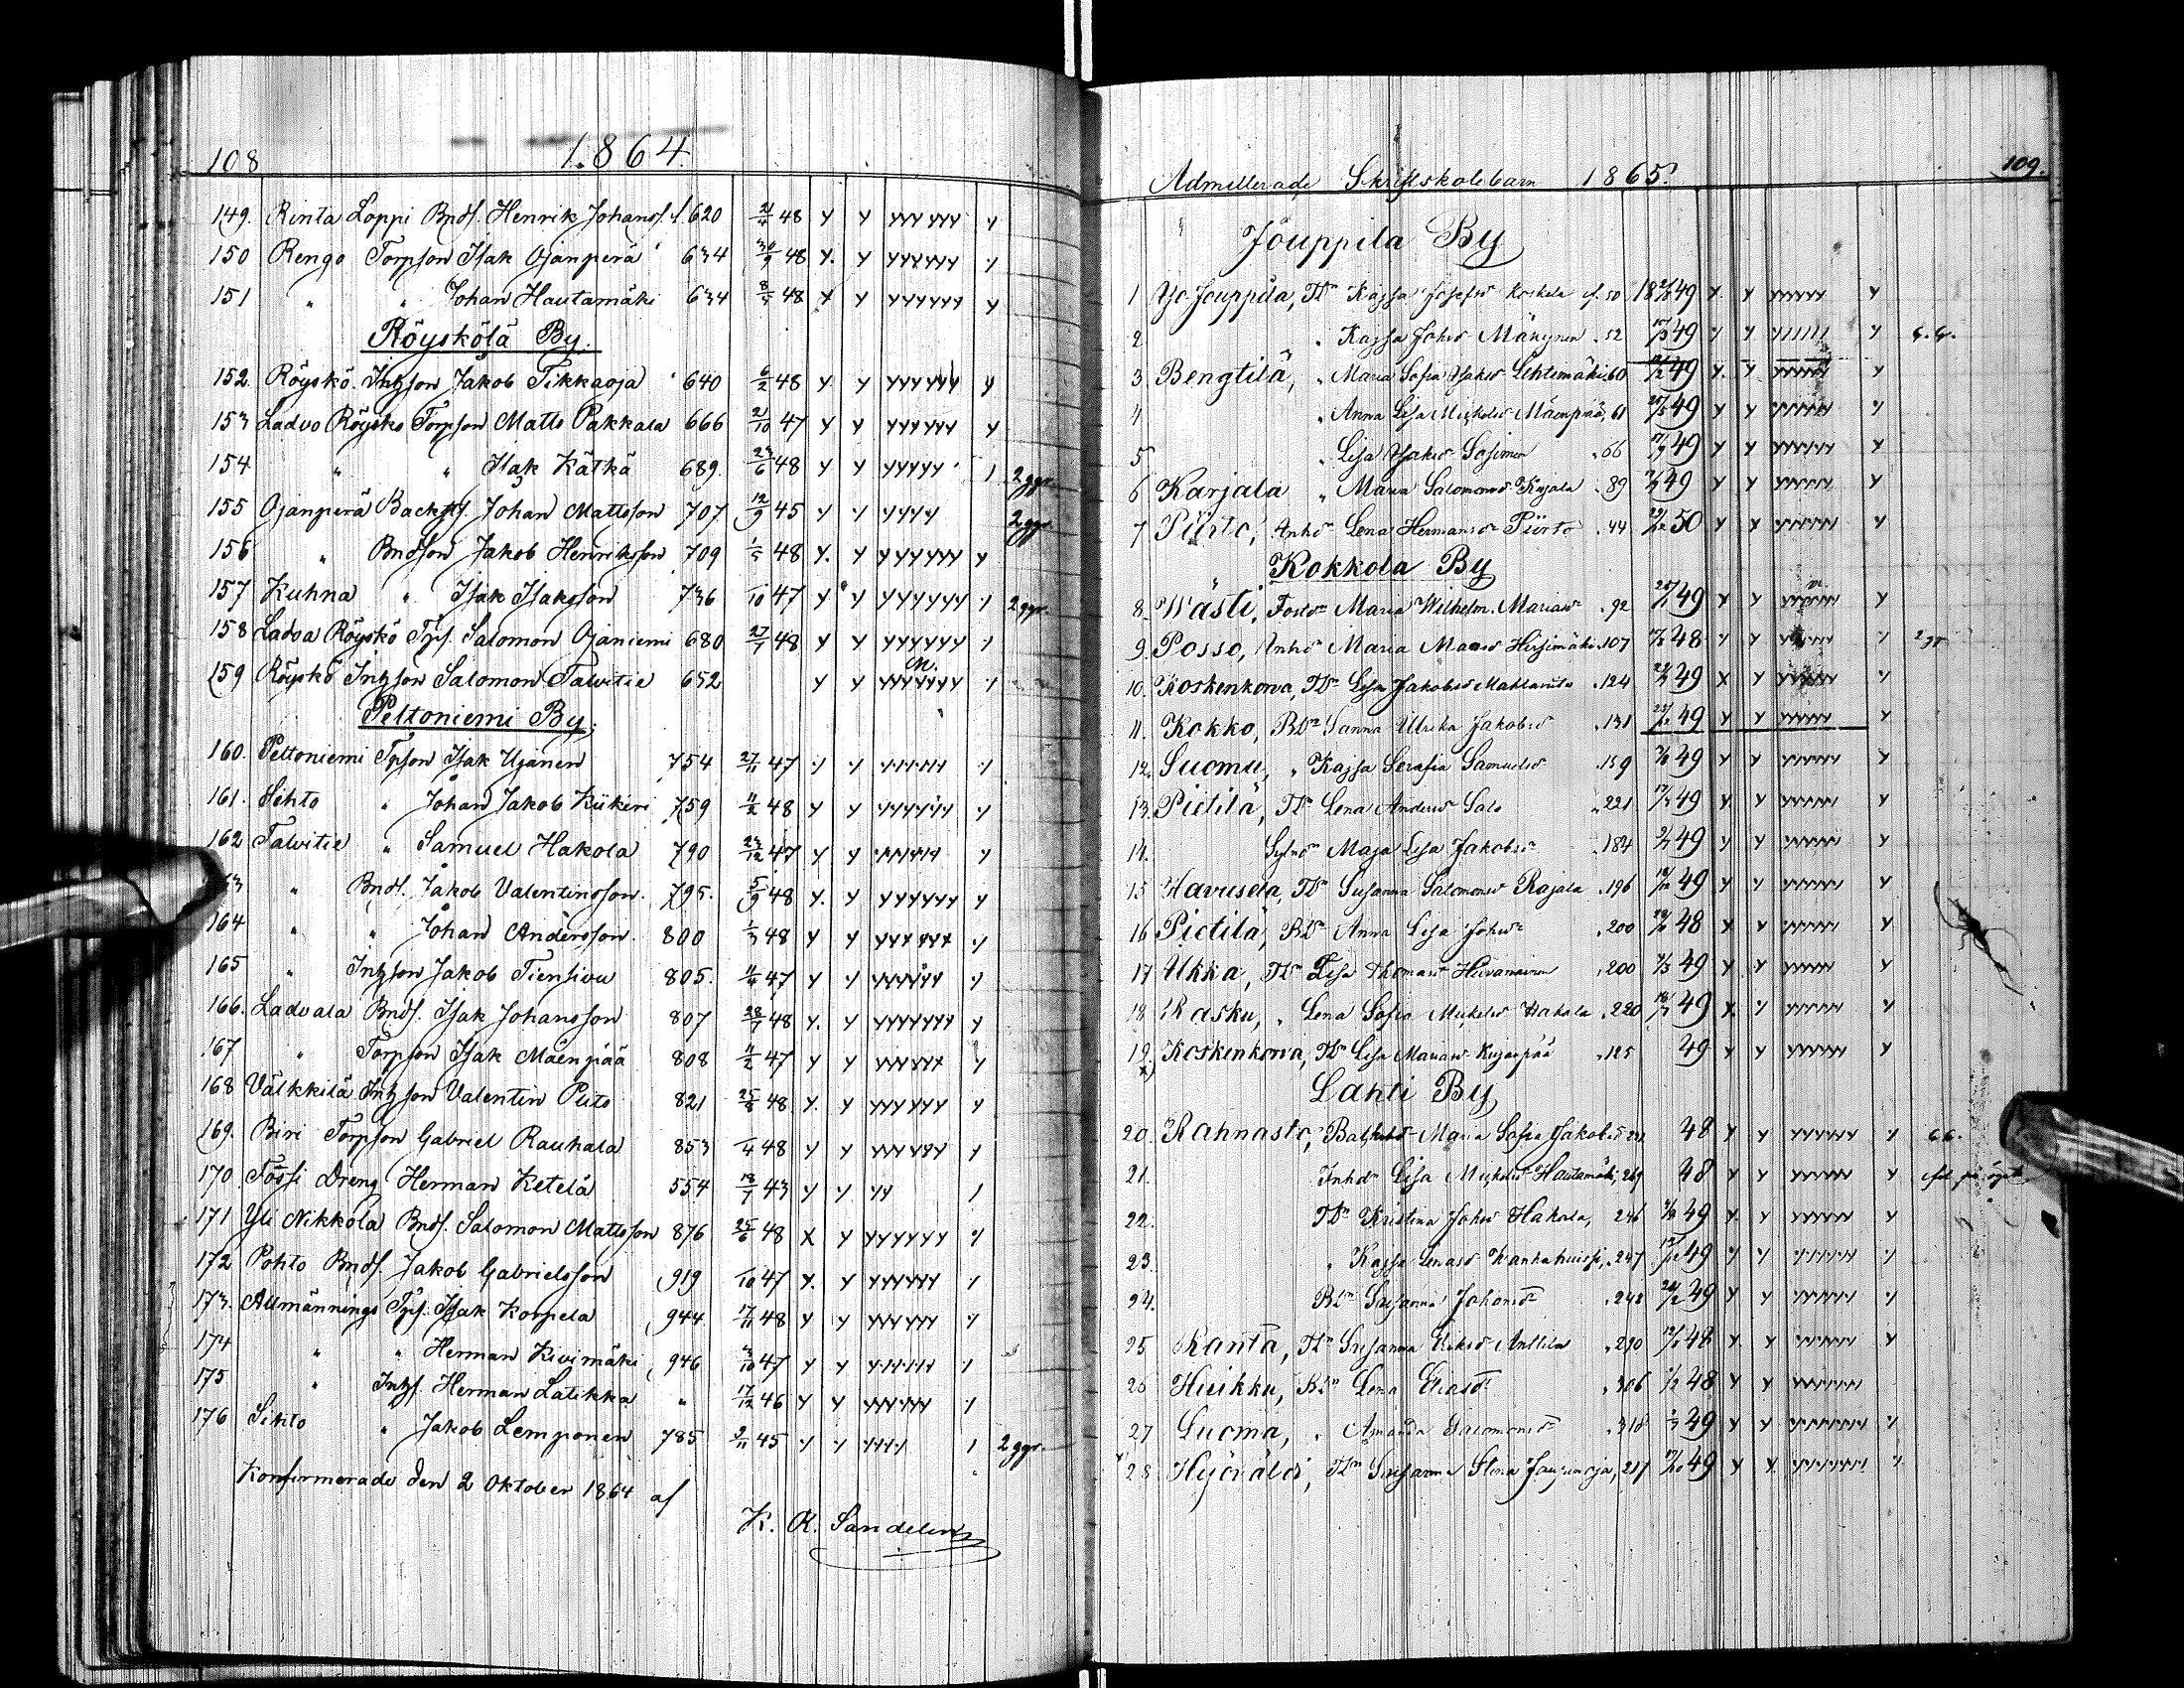 108 1864
149. Rinta Loppi Bnds. Henrik Johans. f. 620 21/4 48 y y yyyyyy y
150 Rengo Torpson Isak Ojanperä 634 30/9 48 y. y yyyyyy y
151 " " Johan Hautamäki 634 8/5 48 y y yyyyyy y
Röyskölä By.
152 Röyskö Inhyson Jakob Tikkaoja 640 6/2 48 y y yyyyyy y
153 Ladvo Röyskö Torpson Matts Pakkala 666 21/10 47 y y yyyyyy y
154 " " Isak Kätkä 689. 23/6 48 y y yyyyy 1 2 ggr.
155 Ojanperä Backss. Johan Mattsson 707 12/9 45 y y yyyy 2 ggr
156 " Bndson Jakob Henriksson 709 1/5 48 y. y yyyyyy y
157 Kuhna " Isak Isaksson 736 /10 47 y y yyyyyy y 2 ggr.
158 Ladva Röyskö Tps. Salomon Ojaniemi 680 27/7 48 y y yyyyyy y
159 Röyskö Inhyson Salomon Talvitie 652 y y yyyyyy y
Peltoniemi By.
160. Peltoniemi Tpson Isak Ujanen 754 27/11 47 y y yyyyyy y
161. Sihto " Johan Jakob Kiikeri 759 11/2 48 y y yyyyyy y
162 Talvitie " Samuel Hakola 790 23/12 47 y y yyyyyy y
63 " Bnds. Jakob Valentinsson. 795. 5/9 48 y. y yyyyyy y
164 " " Johan Andersson 800 1/3 48 y y yyyyyy y
165 " Inhyson Jakob Tiensivu 805. 11/4 47 y y yyyyyy y
166. Ladvala Bnds. Isak Johansson 807 28/7 48 y. y yyyyyyy y
167 " Torpson Isak Mäenpää 808 11/2 47 y y yyyyyy y
168 Välkkilä Inhyson Valentin Puto 821 25/8 48 y. y yyyyyy y
169. Biri Torpson Gabriel Rauhala 853 /4 48 y y yyyyyy y
170. Tössi Dreng Herman Ketelä 554 18/7 43 y y yy 1
171 Yli Nikkola Bnds. Salomon Mattsson 876 25/6 48 X y yyyyyy y
172 Pohto Bnds. Jakob Gabrielsson 919 /10 47 y. y yyyyyy y
173. Allmännings Tps. Isak Korpela 944 17/11 48 y y yyyyyy y
174 " " Herman Kivimäki 946 3/10 47 y y yyyyyy y
175 " Inhys. Herman Latikka " 17/12 46 y y yyyyyy y
176 Sihto " Jakob Lemponen 785 9/11 45 y y yyyy 1 2 ggr.
Konfirmerade den 2 Oktober 1864 af
K. A. Sandelin
Admitterade Skriftskolebarn 1865. 109.
Jouppila By
1 Yo Jouppila, Tdr Kajsa Josefsd. Koskela f. 50 49 y. y yyyyyy y
2 " Kajsa Johsd. Mäkynen 52 49 y y y
3 Bengtilä, " Maria Sofia Isaksd. Lehtimäki 60 49 y. y y
4 " Anna Lisa Mickelsd. Mäenpää, 61 49 y y yyyyyy y
5 " Lisa Isaksd. 66 49 y y yyyyyy y
6 Karjala " Maria Salomonsd. 89 49 y y yyyyyy y
7 Piirto, Inhdr Lena Hermansd. Piirto 44 50 y y yyyyyy y
Kokkola By
8. Wästi, Fostdr Maria Wilhelm. Mariasd. 92 49 y y yyyyyy y
9. Posso, Inhdr Maria Hirsimäki 107 48 y y y 2 gr
10. Koskenkorva, Tdr Lisa Jakobsd. 124 49 X y y
11. Kokko, Bdr Sanna Ulrika Jakobsd. 131 49 y y yyyyyy y
12. Luomu, " Kajsa Serafia Samuelsd. 159 49 y y yyyyyy y
13. Pietilä, Tdr Lena Andersd. Salo 221 49 y y yyyyyy y
14. Maja Lisa Jakobsd. 184 49 y y yyyyyy y
15 Havusela, Tdr Susanna Salomonsd. Rajala 196 49 y y yyyyyy y
16 Pietilä, Bdr Anna Lisa Johsd. 200 48 y y yyyyyy y
17 Ukka, Tdr Lisa Thomasd. 200 49 y y yyyyyy y
18 Rasku, " Lena Sofia Mickelsd. Hakala 220 49 y. y yyyyyy y
19. Koskenkorva, Tdr Lisa Mariasd. 125 49 y y yyyyyy y
x)
Lahti By
20. Rahnasto, Maria Sofia Jakobsd. 48 y y yyyyyy y
21. Inhdr Lisa Mickelsd. Hautamäki, 269 48 y y yyyyyy y
22. Tdr Kristina Johsd. Hakala, 246 49 y y yyyyyy y
23. " Kajsa Kankahuisi, 247 49 y y yyyyyy y
24. Bdr Susanna Johansd. 248 49 y y yyyyyy y
25 Ranta, Tdr Susanna Eriksd. Anttila 290 48 y. y yyyyyy y
26 Huikku, Bdr Lena Eliasd. 306 48 y y yyyyyy
27 Luoma, " Amanda Salomonsd. 318 49 y y yyyyyy y
28 Tdr Susanna Stina 49 y y yyyyyy y